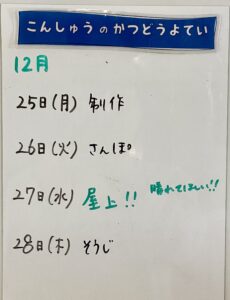 こんしゅうのかつどうよてい
12月
25日(月) 制作
26日(火) さんぽ
27日(水) 屋上!! 晴れてほしい!!
28日(木) そうじ